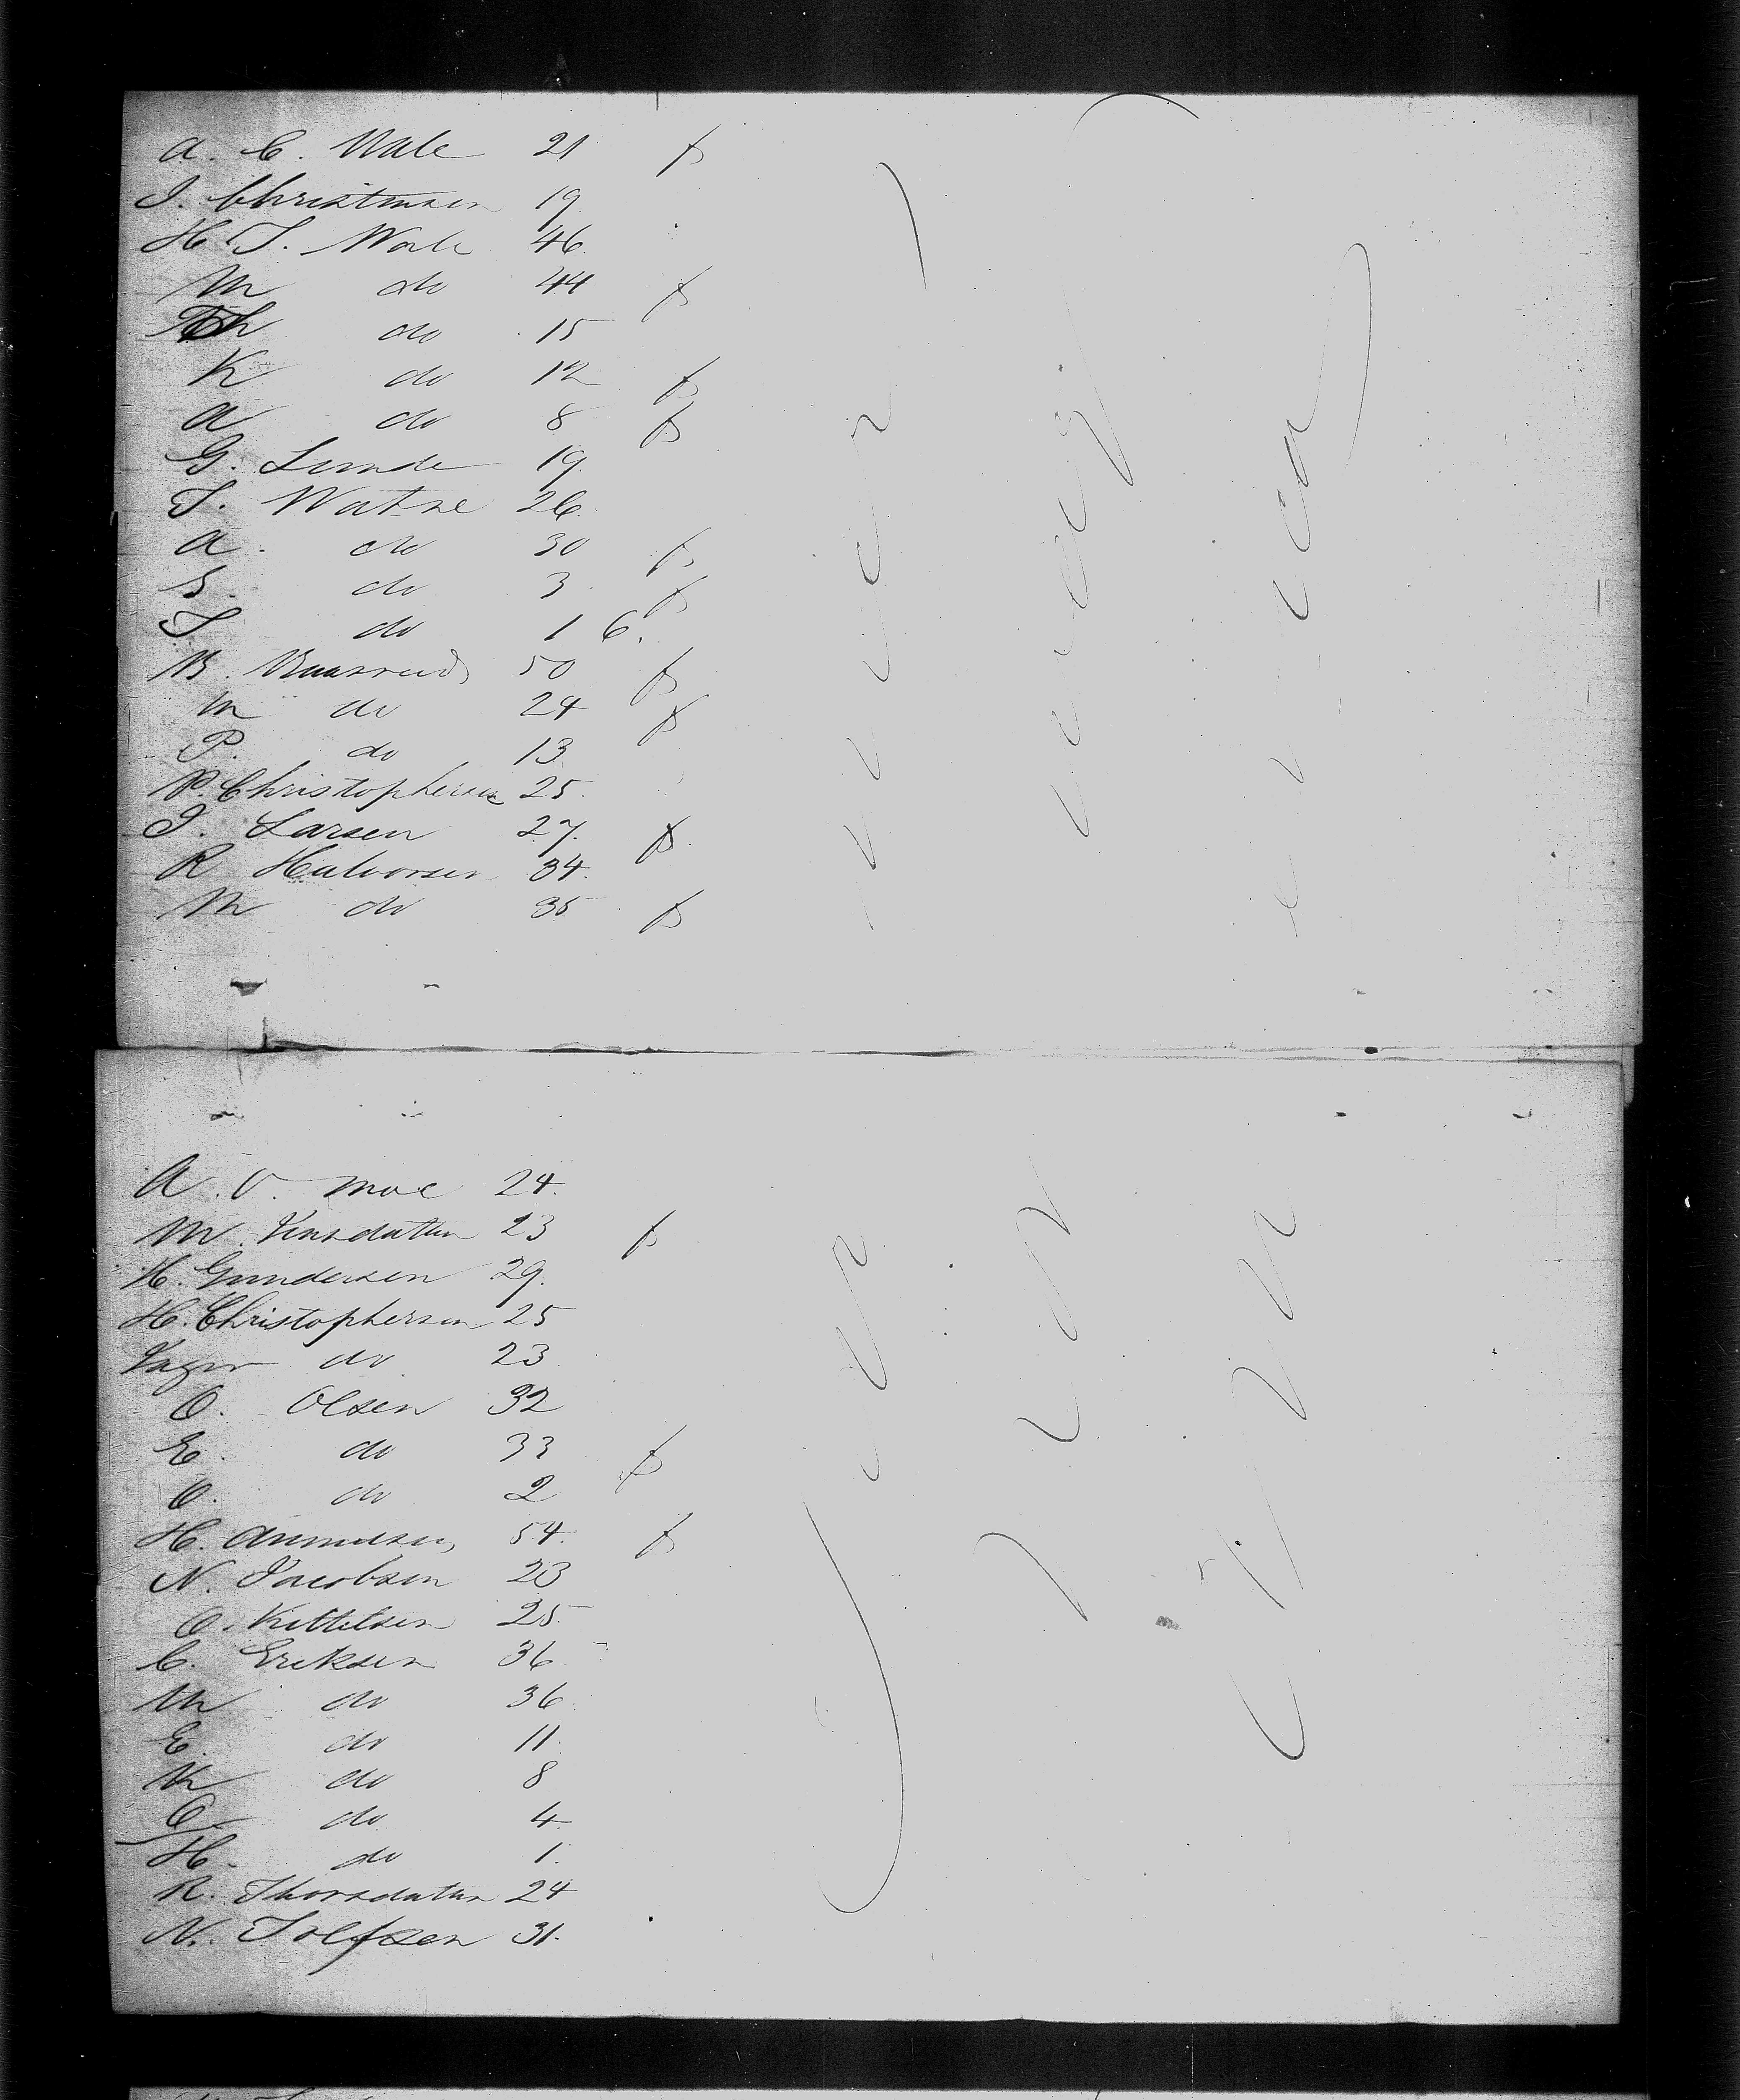 A. C. Wale 21 f
J. Christensen 19
H. T. Wale 46
M do 44 f
Th do 15
K do 12 f
A do 8 f
G. Lunde 19.
T. Watne 26
A. do 30 f
S. do 3 f
T do 1 6.
B. 50 f
M do 24 f
P. do 13
P. Christophersen 25.
J. Larsen 27. f
R Halvorsen 34.
M do 35 f
A. O. Moe 24.
M. 23 f
H. Gundersen 29.
H. Christophersen 25
do 23
O. Olsen 32
E. do 33 f
O. do 2
H. Amundsen 54. f
N. Jacobsen 23
O. Kittelsen 25
C. Eriksen 36
M do 36
E. do 11
M do 8
O do 4
H. do 1.
R. Thorsdatter 24
N. Tolfsen 31.